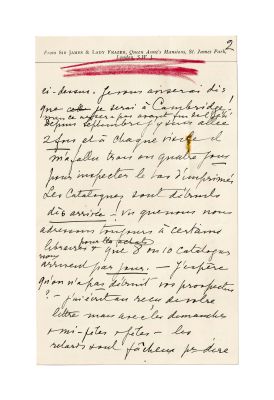 2
From Sir James & Lady Frazer, Queen Anne's Mansions, St. James Park,
London, S.W. 1.
ci-dessus. Je vous aviserai dès
que je serai à Cambridge!
Depuis septembre j'y suis allée
2 fois et à chaque visite il
m'a fallu trois ou quatre jours
pour inspecter le tas d'imprimés
Les Catalogues sont détruits
dès arrivée! Vu que nous nous
adressons toujours à certains
libraires pour les achats
+ que 8 ou 10 catalogues
nous arrivent par jour. — J'espère
qu'on n'a pas détruit vos prospectus
? — j'écrit au reçu de votre
lettre mais avec les dimanches
+ mi-fêtes + fêtes — les
retards sont fâcheux